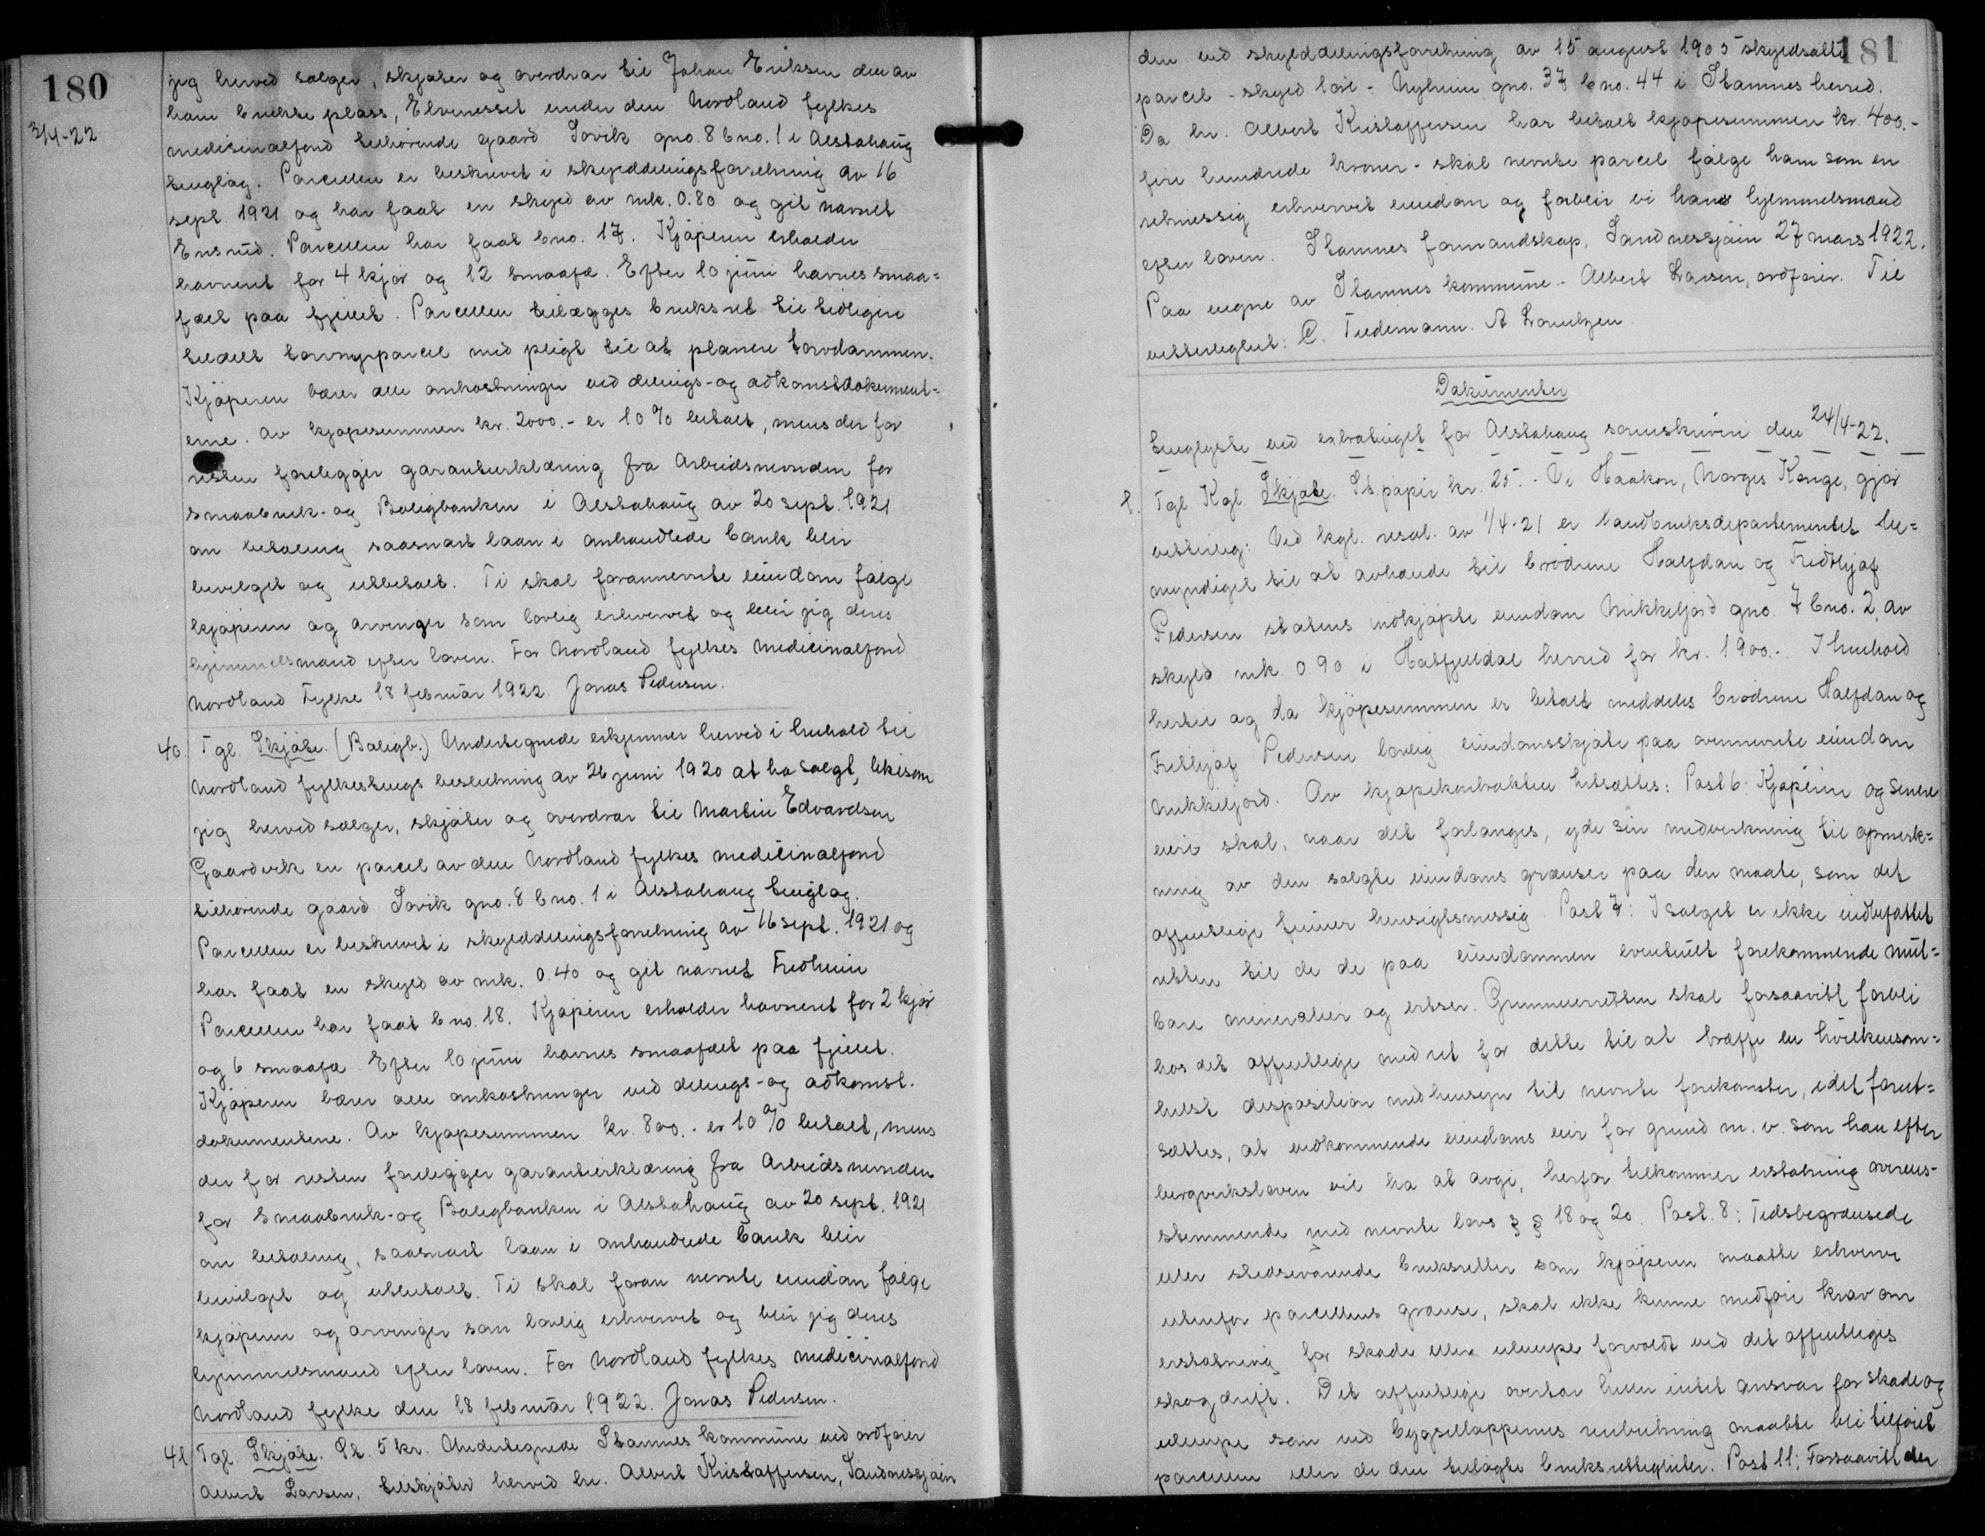 180
3/4-22
jeg herved sælger, skjøter og overdrar til Johan Eriksen den av
ham brukte plass, Elvenesset under den Nordland fylkes
medicinalfond tilhørende gaard Sørvik gno. 8 bno. 1 i Alstahaug
tinglag. Parcellen er beskrevet i skylddelingsforretning av 16
sept 1921 og har faat en skyld av mk. 0.80 og git navnet
Ensrud. Parcellen har faat bno. 17. Kjøperen erholder
havneret for 4 kjør og 12 smaafæ. Efter 10 juni havnes smaa=
fæet paa fjellet. Parcellen tillægges bruksret til tidligere
tildelt torvmyrparcel med pligt til at planere torvdammen.
Kjøperen bærer alle omkostninger ved delings- og adkomstdokument=
erne. Av kjøpesummen kr. 2000.- er 10 % betalt, mens der for
resten foreligger garantierklæring fra Arbeidsnevnden for
Smaabruk- og Boligbanken i Alstahaug av 20 sept. 1921
om betaling saasnart laan i omhandlede bank blir
bevilget og utbetalt. Ti skal forannevnte eiendom følge
kjøperen og arvinger som lovlig erhvervet og blir jeg deres
hjemmelsmand efter loven. For Nordland fylkes medicinalfond
Nordland Fylke 18 februar 1922. Jonas Pedersen.
40. Tgl. Skjøte. (Boligb.) Undertegnede erkjenner herved i henhold til
Nordland fylkestings beslutning av 26 juni 1920 at ha solgt, likesom
jeg herved sælger, skjøter og overdrar til Martin Edvardsen
Gaardvik en parcel av den Nordland fylkes medicinalfond
tilhørende gaard Sørvik gno. 8 bno. 1 i Alstahaug tinglag.
Parcellen er beskrevet i skylddelingsforretning av 16 sept. 1921 og
har faat en skyld av mk. 0.40 og git navnet Fredheim
Parcellen har faat bno. 18. Kjøperen erholder havneret for 2 kjør
og 6 smaafæ. Efter 10 juni havnes smaafæet paa fjellet.
Kjøperen bærer alle omkostninger ved delings- og adkomst.
dokumentene. Av kjøpesummen kr. 800.- er 10 % betalt, mens
der for resten foreligger garantierklæring fra Arbeidsnevnden
for Smaabruk- og Boligbanken i Alstahaug av 20 sept. 1921
om betaling, saasnart laan i omhandlede bank blir
bevilget og utbetalt. Ti skal foran nevnte eiendom følge
kjøperen og arvinger som lovlig erhvervet og blir jeg deres
hjemmelsmand efter loven. For Nordland fylkes medicinalfond
Nordland fylke den 18 februar 1922. Jonas Pedersen.
41 Tgl. Skjøte. St. 5 kr. Undertegnede Stamnes kommune ved ordfører
Albert Larsen, tilskjøter herved hr. Albert Kristoffersen, Sandnessjøen
181
den ved skylddelingsforretning av 15 august 1905 skyldsatte
parcel - skyld 1 øre - Nyheim gno. 37 bno. 44 i Stamnes herred.
Da hr. Albert Kristoffersen har betalt kjøpesummen kr. 400.-
fire hundrede kroner - skal nevnte parcel følge ham som en
retmessig erhvervet eiendom og forblir vi hans hjemmelsmand
efter loven. Stamnes formandskap, Sandnessjøen 27 mars 1922.
Paa vegne av Stamnes kommune. Albert Larsen, ordfører. Til
vitterlighet: C. Tiedemann. A Lorentzen
Dokumenter
tinglyste ved extratinget for Alstahaug sorenskriveri den 24/4-22.
1. Tgl. Kgl Skjøte. St.papir kr. 25.- Vi Haakon, Norges Konge, gjør
vitterlig: Ved kgl. resol. av 1/4-21 er landbruksdepartementet be=
myndiget til at avhænde til brødrene Halfdan og Fridthjof
Pedersen statens indkjøpte eiendom Mikkeljord gno. 7 bno. 2, av
skyld mk 0 90 i Hatfjelldal herred for kr. 1900.-. I henhold
hertil og da kjøpesummen er betalt meddeles brødrene Halfdan og
Fridthjof Pedersen lovlig eiendomsskjøte paa ovennevnte eiendom
Mikkeljord. Av kjøpekontrakten hitsættes: Post 6: Kjøperen og senere
eiere skal, naar det forlanges, yde sin medvirkning til opmerk=
ning av den solgte eiendoms grænser paa den maate, som det
offentlige finner hensigtsmessig. Post 7: I salget er ikke indbefattet
retten til de de paa eiendommen eventuelt forekommende mut=
bare mineralier og ertser. Grunneierretten skal forsaavidt forbli
hos det offentlige med ret for dette til at træffe en hvilkensom=
helst disposition med hensyn til nevnte forekomster, idet forut=
sættes, at vedkommende eiendoms eier for grund m. v. som han efter
bergverksloven vil ha at avgi, herfor tilkommer erstatning overens-
stemmende med nevnte lovs § § 18 og 20. Post. 8: Tidsbegrænsede
eller stedsevarende bruksretter som kjøperen maatte erhverve
utenfor parcellens grænse, skal ikke kunne medføre krav om
erstatning for skade eller ulempe forvoldt ved det offentliges
skogdrift. Det offentlige overtar heller intet ansvar for skade og
ulempe som ved bygsellappenes renbeitning maatte bli tilføiet
parcellen eller de den tillagte bruksrettigheter. Post 11: Forsaavidt der